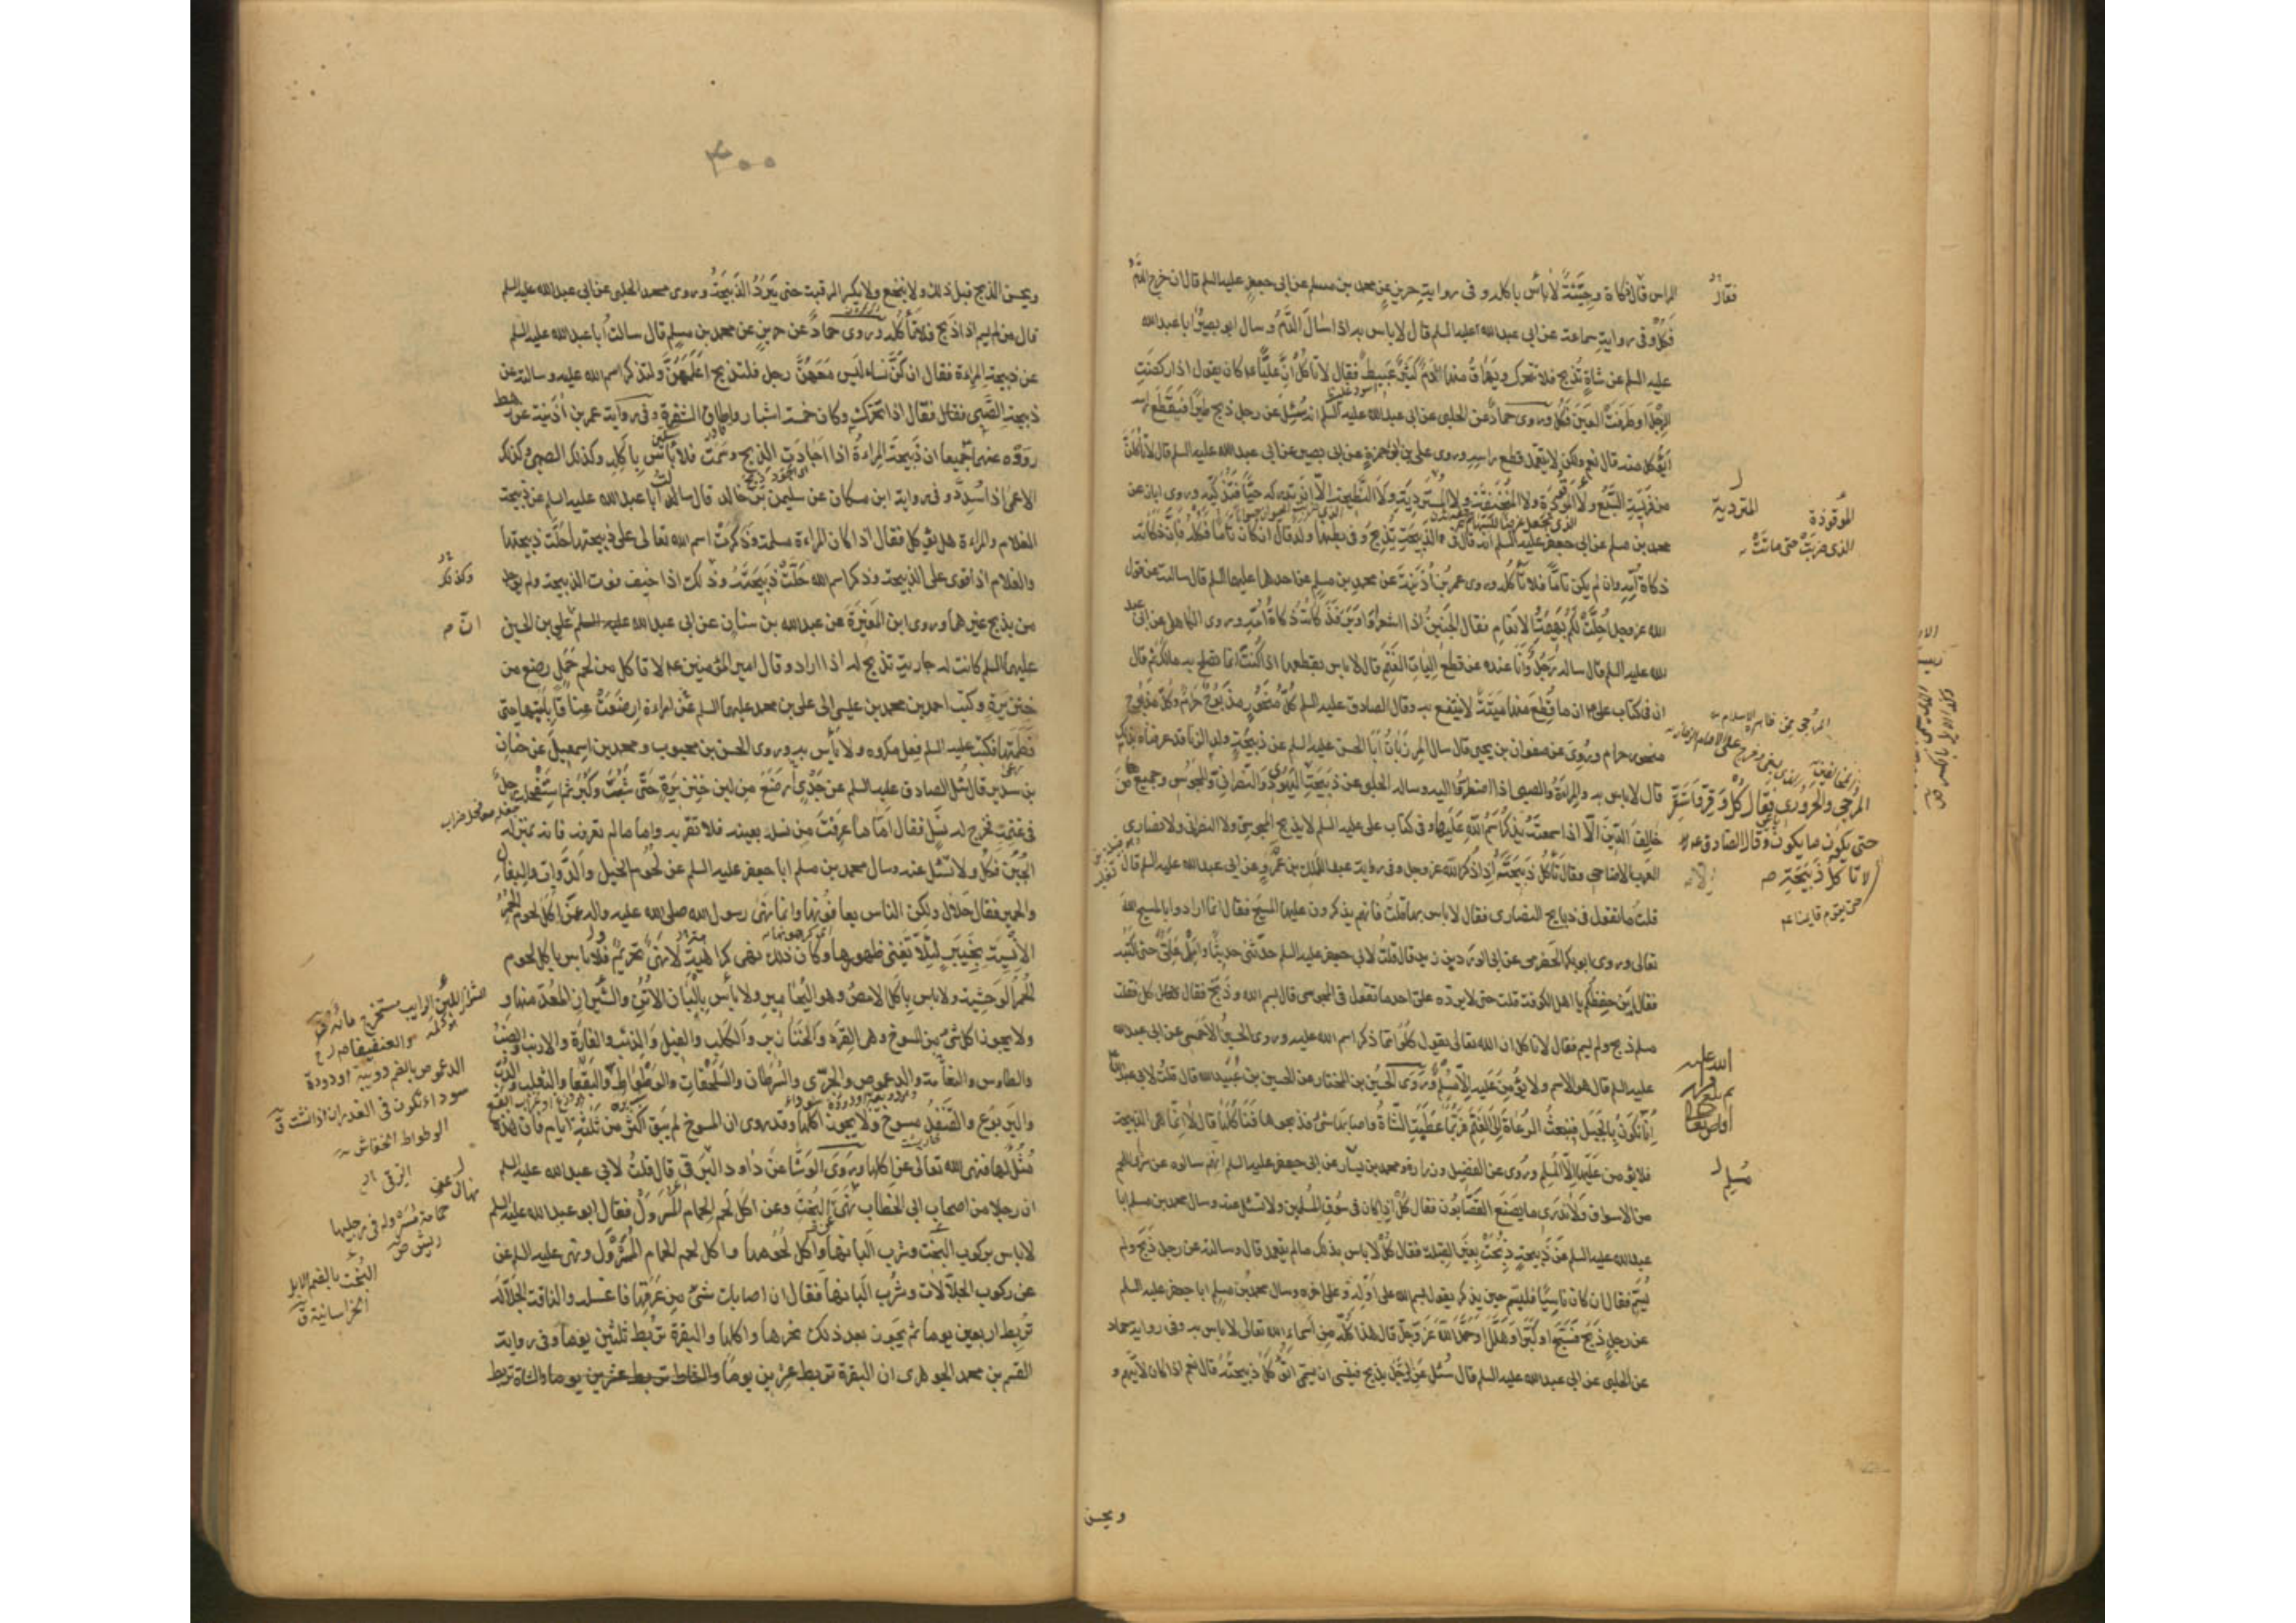 الراس قال ذكاة وحيّة لا بأس باكله و فى رواية حريز عن محمد بن مسلم عن ابى جعفر عليه السلم قال ان خرج الدم
فكل وفى رواية سماعة عن ابى عبد الله عليه السلم قال لا باس به اذا سال الدم و سال ابو بصير ابا عبد الله
عليه السلم عن شاة تذبح فلا تتحرك ويهراق منها دم كثير عبيط فقال لا تاكل ان عليا كان يقول اذا ركضت
الرجل او طرفت العين فكل وروى حماد عن الحلبى عن ابى عبد الله عليه السلم انه سئل عن رجل ذبح طيرا فيقطع راسه
أيؤكل منه قال نعم ولكن لا يتعمد قطع راسه وروى على بن ابى حمزة عن ابى بصير عن ابى عبد الله عليه السلم قال لا تأكلن
من فريسة السبع ولا الموقوذة ولا المنخنقة ولا المتردية ولا النطيحة الا ان تدركه حيا فتذكيه وروى ابان عن
محمد بن مسلم عن ابى جعفر عليه السلم انه قال فى الذبيحة تذبح وفى بطنها ولد قال ان كان تاما فكله فان ذكاته
ذكاة امه وان لم يكن تاما فلا تأكله وروى عمر بن أذينة عن محمد بن مسلم عن احدهما عليهما السلم قال سالته عن قول
الله عز وجل احلت لكم بهيمة الانعام فقال الجنين اذا اشعر او اوبر فذكاته ذكاة امه وروى الكاهلى عن ابى عبد
الله عليه السلم قال ساله رجل وانا عنده عن قطع اليات الغنم قال لا باس بقطعها اذا كنت انما تصلح به مالك ثم قال
ان فى كتاب على ان ما قطع منها ميتة لا ينتفع به وقال الصادق عليه السلم كل منحور مذبوح حرام وكل مذبوح
منحور حرام وروى عن صفوان بن يحيى قال سال المرزبان ابا الحسن عليه السلم عن ذبيحة ولد الزنا قد عرفناه بذلك
قال لا باس به والمراة والصبى اذا اضطروا اليه وساله الحلبى عن ذبيحة
المرجى والحرورى فقال كل وقر واستقر
حتى يكون ما يكون وقال الصادق
لا تاكل ذبيحة
العرب الاضاحى وقال تأكل ذبيحته اذا ذكر الله عز وجل وفى رواية عبد الملك بن عمرو عن ابى عبد الله عليه السلم قال
قلت ما تقول فى ذبايح النصارى فقال لا باس بها قلت فانهم يذكرون عليها المسيح فقال انما ارادوا بالمسيح الله
تعالى وروى ابو بكر الحضرمى عن الورد بن زيد قال قلت لابى جعفر عليه السلم حدثنى حديثا وامله على حتى اكتبه
فقال اين حفظكم يا اهل الكوفة قلت حتى لا يرده على احد ما تقول فى مجوسى قال بسم الله وذبح فقال كل فقلت
مسلم ذبح ولم يسم فقال لا تاكل ان الله تعالى يقول فكلوا مما ذكر اسم الله عليه وروى الحسين الاحمسى عن ابى عبد الله
عليه السلم قال هو الاسم ولا يؤمن عليه الا مسلم وروى الحسين بن المختار عن الحسين بن عبيد الله قال قلت لابى عبد الله
انا نكون بالجبل فنبعث الرعاة الى الغنم فربما عطبت الشاة واصابها شئ فذبحوها فنأكلها قال لا انما هى الذبيحة
فلا يؤمن عليها الا المسلم وروى عن الفضيل وزرارة ومحمد بن مسلم عن ابى جعفر عليه السلم انهم سالوه عن شرى اللحم
من الاسواق ولا ندرى ما يصنع القصابون فقال كل اذا كان فى سوق المسلمين ولا تسئل عنه وسال محمد بن مسلم ابا
عبد الله عليه السلم عن ذبيحة ذبحت بغير القبلة فقال كل لا باس بذلك ما لم يتعمد قال وسالته عن رجل ذبح ولم
يسم فقال ان كان ناسيا فليسم حين يذكر يقول بسم الله على اوله وعلى اخره وسال محمد بن مسلم ابا جعفر عليه السلم
عن رجل ذبح فسبح او كبر او هلل او حمد الله عز وجل قال هذا كله من اسماء الله تعالى لا باس به وفى رواية حماد
عن الحلبى عن ابى عبد الله عليه السلم قال سئل عن الرجل يذبح فينسى ان يسمى اتؤكل ذبيحته قال نعم اذا كان لا يتهم و
فقال
الموقوذة
المتردية
الذى ضربت حتى ماتت
حتى يقوم قايمنا
مسلم
ويحسن
٣٠٠
ويحسن الذبح قبل ذلك ولا ينخع ولا يكسر الرقبة حتى يبرد الذبيحة وروى محمد الحلبى عن ابى عبد الله عليه السلم
قال من لم يسم اذا ذبح فلا تأكله وروى حماد عن حريز عن محمد بن مسلم قال سالت ابا عبد الله عليه السلم
عن ذبيحة المراءة فقال ان كن نساء ليس معهن رجل فلتذبح اعلمهن ولتذكر اسم الله عليه وسالته عن
ذبيحة الصبى فقال اذا تحرك وكان خمسة اشبار واطاق الشفرة وفى رواية عمر بن أذينة عن رهط
رووه عنهما جميعا ان ذبيحة المراءة اذا اجادت الذبح وسمت فلا بأس باكله وكذلك الصبى وكذلك
الاعمى اذا سدد وفى رواية ابن مسكان عن سليمن بن خالد قال سالت ابا عبد الله عليه السلم عن ذبيحة
الغلام والمراءة هل يؤكل فقال اذا كان المراءة مسلمة وذكرت اسم الله تعالى على ذبيحتها حلت ذبيحتها
والغلام اذا قوى على الذبيحة وذكر اسم الله حلت ذبيحته وذلك اذا خيف فوت الذبيحة ولم يوجد
من يذبح غيرهما وروى ابن المغيرة عن عبد الله بن سنان عن ابى عبد الله عليه السلم على بن الحسين
عليهما السلم كانت له جارية تذبح له اذا اراد وقال امير المؤمنين لا تاكل من لحم حمل رضع من
خنزيرة وكتب احمد بن محمد بن عيسى الى على بن محمد عليهما السلم عن امراءة ارضعت عناقا بلبنها حتى
فطمتها فكتب عليه السلم فعل مكروه ولا بأس به وروى الحسن بن محبوب ومحمد بن اسمعيل عن حنان
بن سدير قال سئل الصادق عليه السلم عن جدى رضع من لبن خنزيرة حتى شب وكبر ثم استفحله رجل
فى غنمه فخرج له نسل فقال اما ما عرفت من نسله بعينه فلا تقربه واما ما لم تعرفه فانه بمنزلة
الجبن فكل ولا تسئل عنه وسال محمد بن مسلم ابا جعفر عليه السلم عن لحوم الخيل والدواب والبغال
والحمير فقال حلال ولكن الناس يعافونها وانما نهى رسول الله صلى الله عليه واله عن اكل لحوم الحمر
الانسية بخيبر لئلا تفنى ظهورها وكان ذلك نهى كراهة لا نهى تحريم فلا باس باكل لحوم
الحمر الوحشية ولا باس باكل الامص وهو اليحامير ولا بأس بالبان الاتن والشيراز المعد منها و
ولا يجوز اكل شئ من المسوخ وهى القردة والخنازير والكلب والفيل والذئب والفارة والارنب والضب
والطاوس والنعامة والدعموص والجرى والسرطان والسلحفاة والوطواط والبقعا والثعلب والدب
واليربوع والقنفذ مسوخ ولا يجوز اكلها وقد روى ان المسوخ لم تبق اكثر من ثلثة ايام فان هذه
مثل لها فنهى الله تعالى عن اكلها وروى الوشا عن داود الرقى قال قلت لابى عبد الله عليه السلم
ان رجلا من اصحاب ابى الخطاب نهى عن البخت وعن اكل لحم الحمام المسرول فقال ابو عبد الله عليه السلم
لا باس بركوب البخت وشرب البانها واكل لحومها واكل لحم الحمام المسرول ونهى عليه السلم عن
عن ركوب الجلالات وشرب البانها فقال ان اصابك شئ من عرقها فاغسله والناقة الجلالة
تربط اربعين يوما ثم يجوز بعد ذلك نحرها واكلها والبقرة تربط ثلثين يوما وفى رواية
القسم بن محمد الجوهرى ان البقرة تربط عشرين يوما والشاة تربط
وكذلك
ان
الدعموص بالضم دويبة او دودة
سوداء تكون فى الغدران اذا نشت ق
الوطواط الخفاش
الرقى
حمامة مسرولة فى رجليها
ريش ص
البخت بالضم الابل
الخراسانية ق